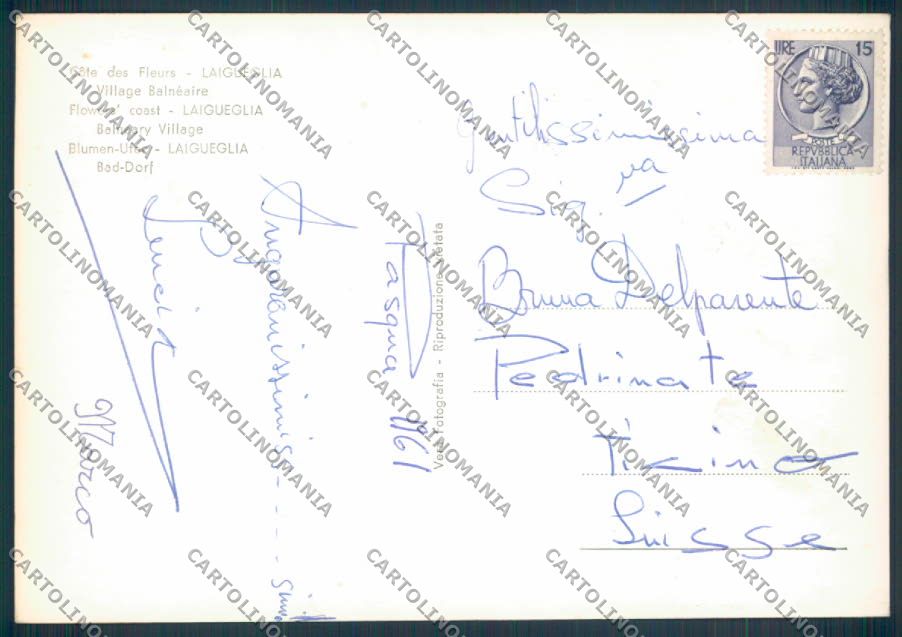 Côte des Fleurs - LAIGUEGLIA
Village Balnéaire
Flowers' coast - LAIGUEGLIA
Balneary Village
Blumen-Ufer - LAIGUEGLIA
Bad-Dorf
LIRE 15
POSTE
REPVBBLICA
ITALIANA
Gentilissimissima
Sig.na
Bruna Delparente
Pedrinate
Ticino
Suisse
Vera Fotografia - Riproduzione vietata
Pasqua 1961
Augurenissimiss - - -
Marco
CARTOLINOMANIA